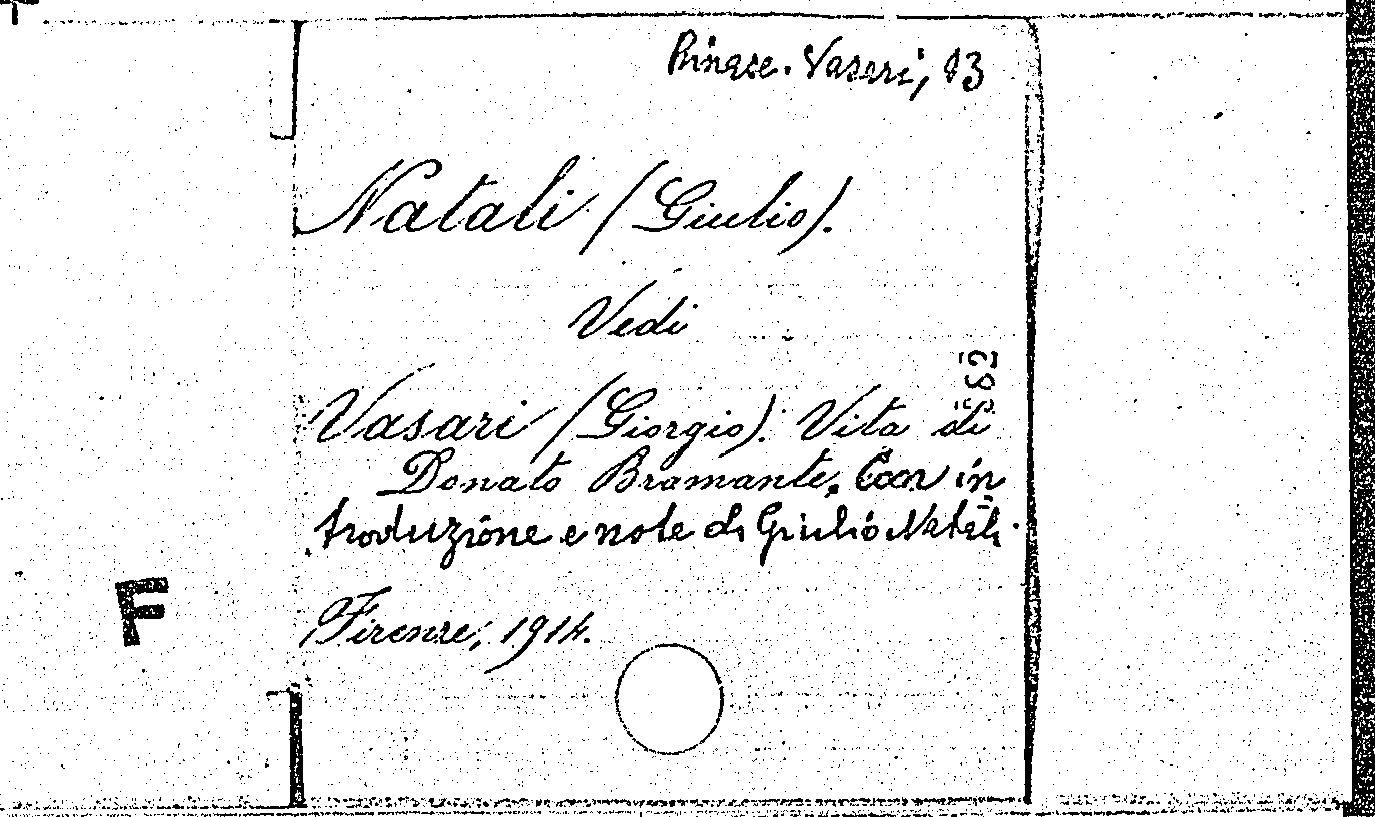 Rinasc. Vasari, 13
Natali (Giulio).
Vedi
Vasari (Giorgio). Vita di
Donato Bramante. Con in
troduzione e note di Giulio Natali.
Firenze, 1914.
F